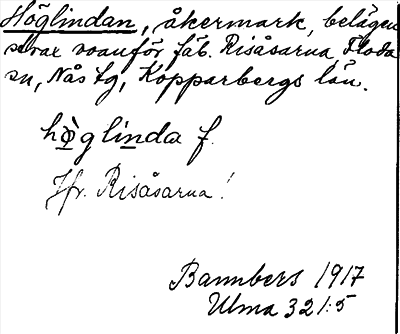 Höglindan, åkermark, belägen
ovanför fäb. Risåsarna, Floda
sn, Nås tg, Kopparbergs län.
høglinda f.
Jfr. Risåsarna!
Bannbers 1917
Ulma 321:5